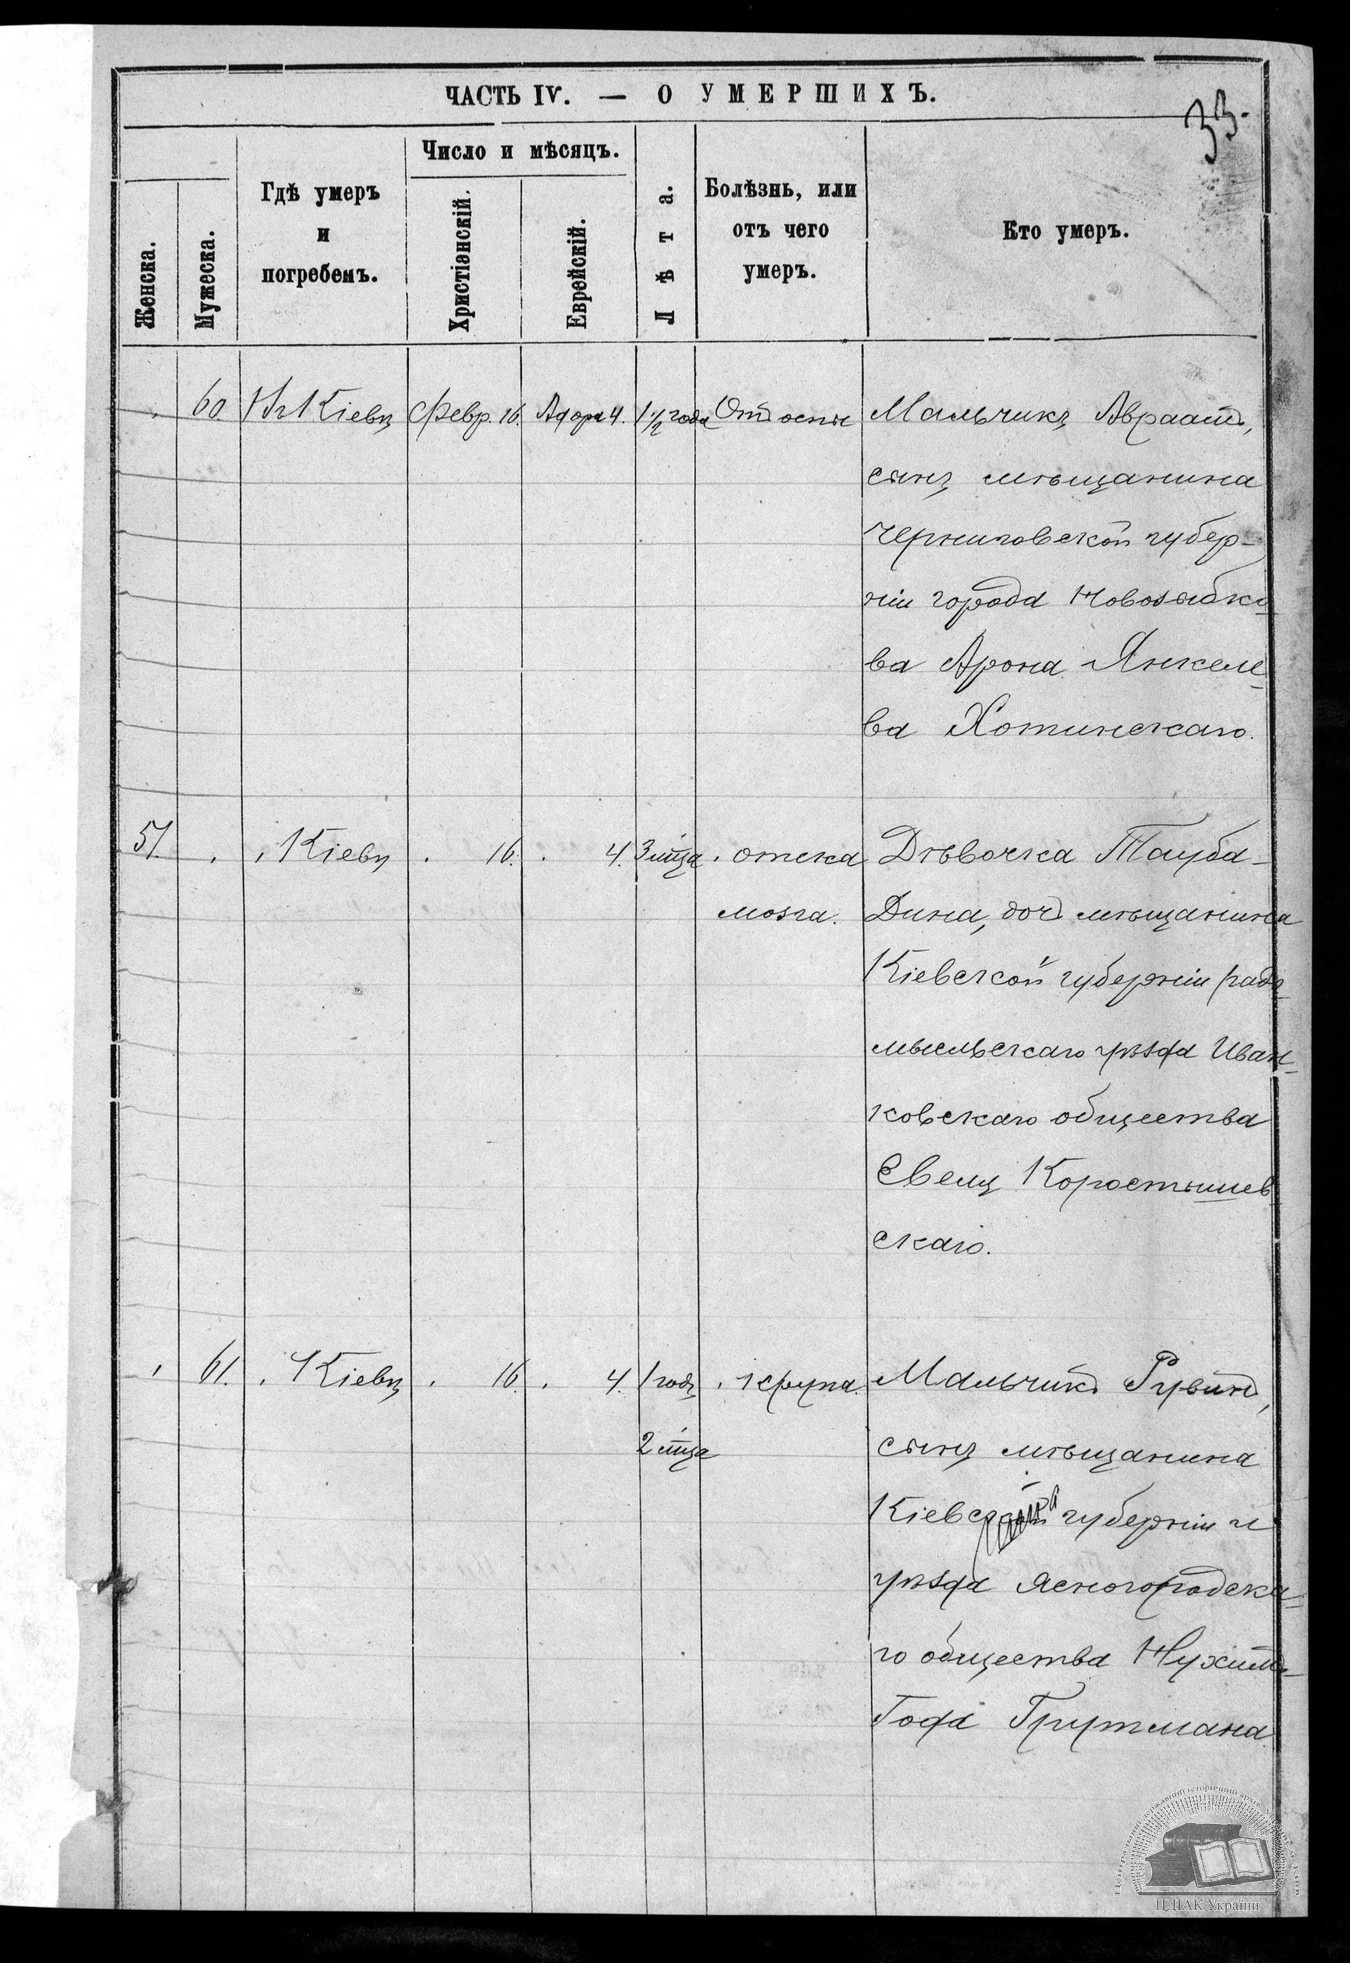 ЧАСТЬ IV. — О УМЕРШИХЪ.
33.
Женска.
Мужеска.
Гдѣ умеръ
и
погребенъ.
Число и мѣсяцъ.
Христіанскій.
Еврейскій.
Лѣта.
Болѣзнь, или
отъ чего
умеръ.
Кто умеръ.
60 Въ Кіевѣ Февр. 16. Адора 4. 1 1/2 года Отъ оспы Мальчикъ Авраамъ,
сынъ мѣщанина
Черниговской губер-
ніи города Новозыбко
ва Арона Янкеле-
ва Хотинскаго.
51. Кіевѣ 16. 4. 3 м-ца отека Дѣвочка Тауба-
мозга. Дина, дочь мѣщанина
Кіевской губерніи Радо-
мысльскаго уѣзда Иван-
ковскаго общества
Евеля Коростышев
скаго.
61. Кіевѣ 16. 4. 1 годъ крупа. Мальчикъ Рувинъ,
2 м-ца сынъ мѣщанина
Кіевской губерніи и
уѣзда Ясногородска-
го общества Нухимъ-
Гофа Грутмана
ЦДІАК України